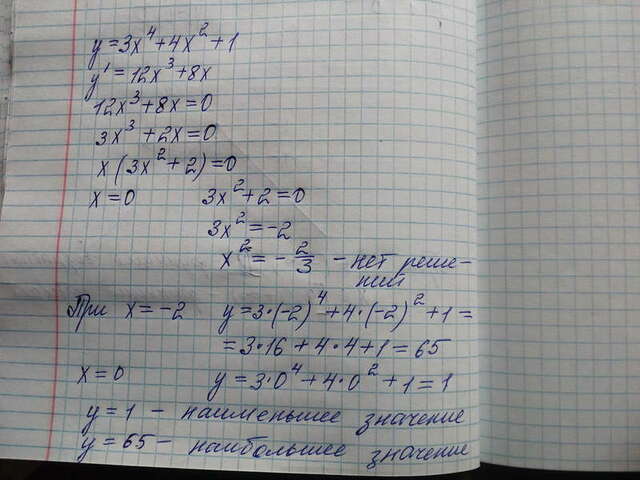 y=3x⁴+4x²+1
y'=12x³+8x
12x³+8x=0
3x³+2x=0
x(3x²+2)=0
x=0 3x²+2=0
3x²=-2
x²=-2/3 - нет реше-
ний
При x=-2 y=3·(-2)⁴+4·(-2)²+1=
=3·16+4·4+1=65
x=0 y=3·0⁴+4·0²+1=1
y=1 - наименьшее значение
y=65- наибольшее значение